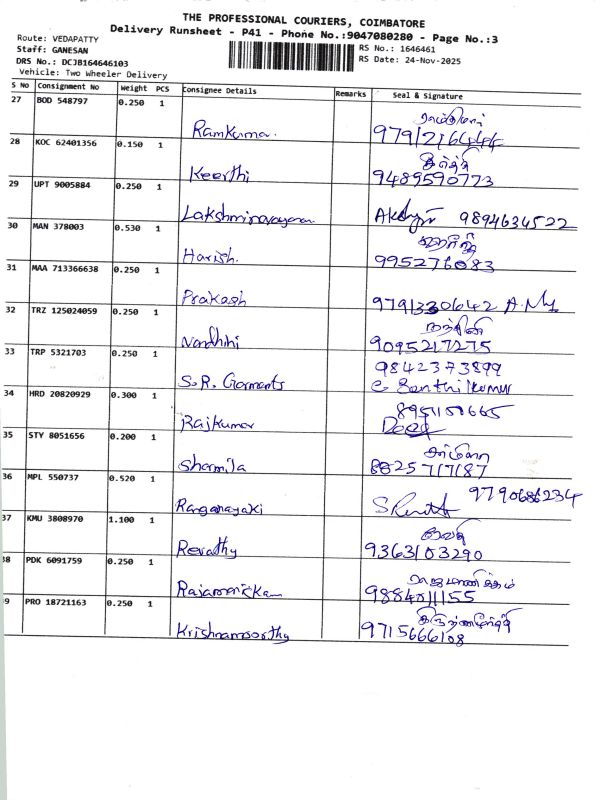 THE PROFESSIONAL COURIERS, COIMBATORE
Delivery Runsheet - P41 - Phone No.:9047080280 - Page No.:3
Route: VEDAPATTY
Staff: GANESAN
DRS No.: DCJB164646103
Vehicle: Two Wheeler Delivery
RS No.: 1646461
RS Date: 24-Nov-2025
S No Consignment No Weight PCS Consignee Details Remarks Seal & Signature
27 BOD 548797 0.250 1
Ramkumar ராம்குமார்
28 KOC 62401356 0.150 1
Keerthi கீர்த்தி
9489590773
29 UPT 9005884 0.250 1
Lakshminarayanan 9894634522
30 MAN 378003 0.530 1
Harish ஹரிஷ்
995276083
31 MAA 713366638 0.250 1
Prakash
32 TRZ 125024059 0.250 1
Nandhini நந்தினி
9095217275
33 TRP 5321703 0.250 1
9842373899
S.R. Garments C. Senthilkumar
34 HRD 20820929 0.300 1
Rajkumar
35 STY 8051656 0.200 1
Sharmila சர்மிளா
36 MPL 550737 0.520 1
9790686234
Ranganayaki
37 KMU 3808970 1.100 1
Revathy ரேவதி
9363103290
38 PDK 6091759 0.250 1
Rajamanickam ராஜமாணிக்கம்
9884011155
39 PRO 18721163 0.250 1
Krishnamoorthy கிருஷ்ணமூர்த்தி
9715666108